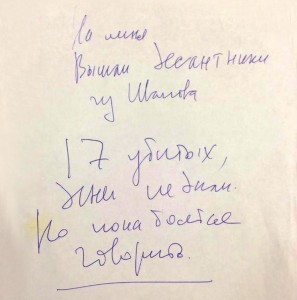 На меня
Вышли десантники
из Иванова
17 убитых,
Они не дали.
Но пока боятся
говорить.